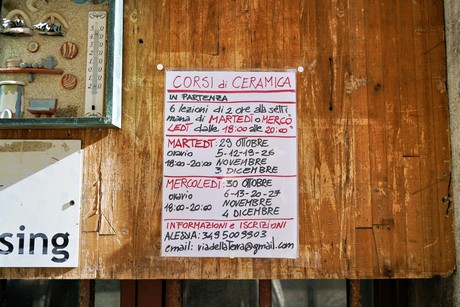 CORSI di CERAMICA
IN PARTENZA
6 lezioni di 2 ore alla setti
mana di MARTEDÌ o MERCO
LEDÌ dalle 18:00 alle 20:00
MARTEDÌ: 29 OTTOBRE
orario 5-12-19-26
18:00-20:00 NOVEMBRE
3 DICEMBRE
MERCOLEDÌ: 30 OTTOBRE
orario 6-13-20-27
18:00-20:00 NOVEMBRE
4 DICEMBRE
INFORMAZIONI e ISCRIZIONI
ALESSIA: 349 5009903
email: viadellaterra@gmail.com
sing